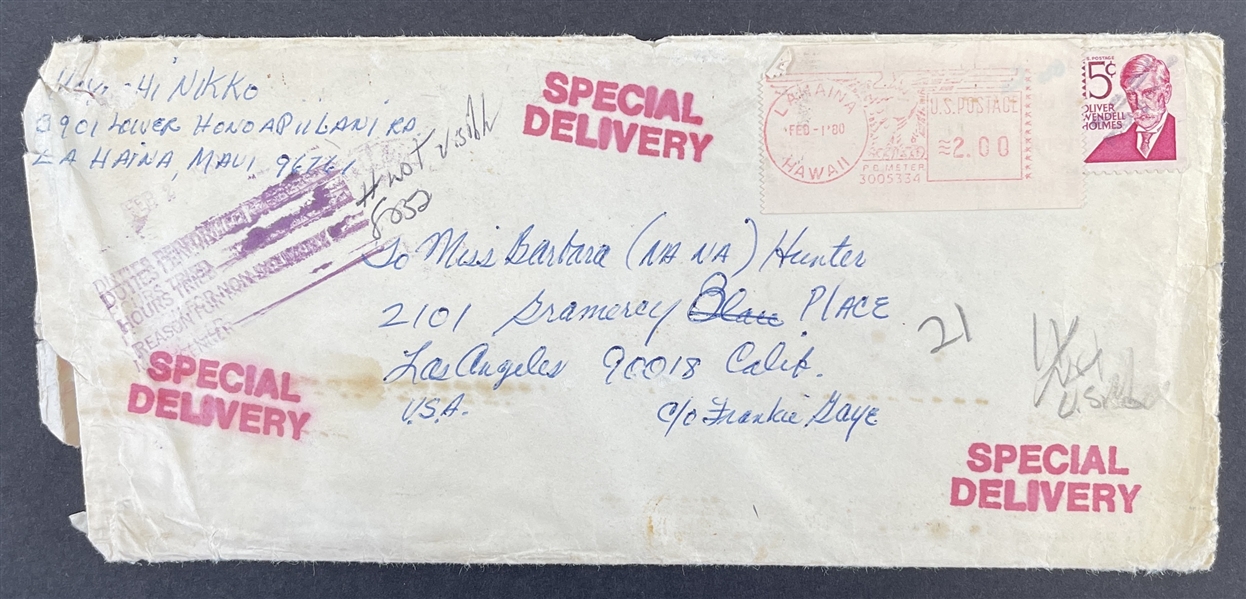 Hi NIKKO
3901 LOWER HONOAPIILANI RD.
LA HAINA, MAUI, 96761
# NOT visible
8052
SPECIAL
DELIVERY
LAHAINA
FEB -1 '80
HAWAII
U.S. POSTAGE
≈2.00
P.O. METER
3005334
U.S. POSTAGE
15¢
OLIVER
WENDELL
HOLMES
FEB 2
HOURS TRIED
REASON FOR NON-DELIVERY
To Miss Barbara (NA NA) Hunter
2101 Gramercy PLACE
Los Angeles 90018 Calif.
U.S.A. c/o Frankie Gaye
21
SPECIAL
DELIVERY
SPECIAL
DELIVERY